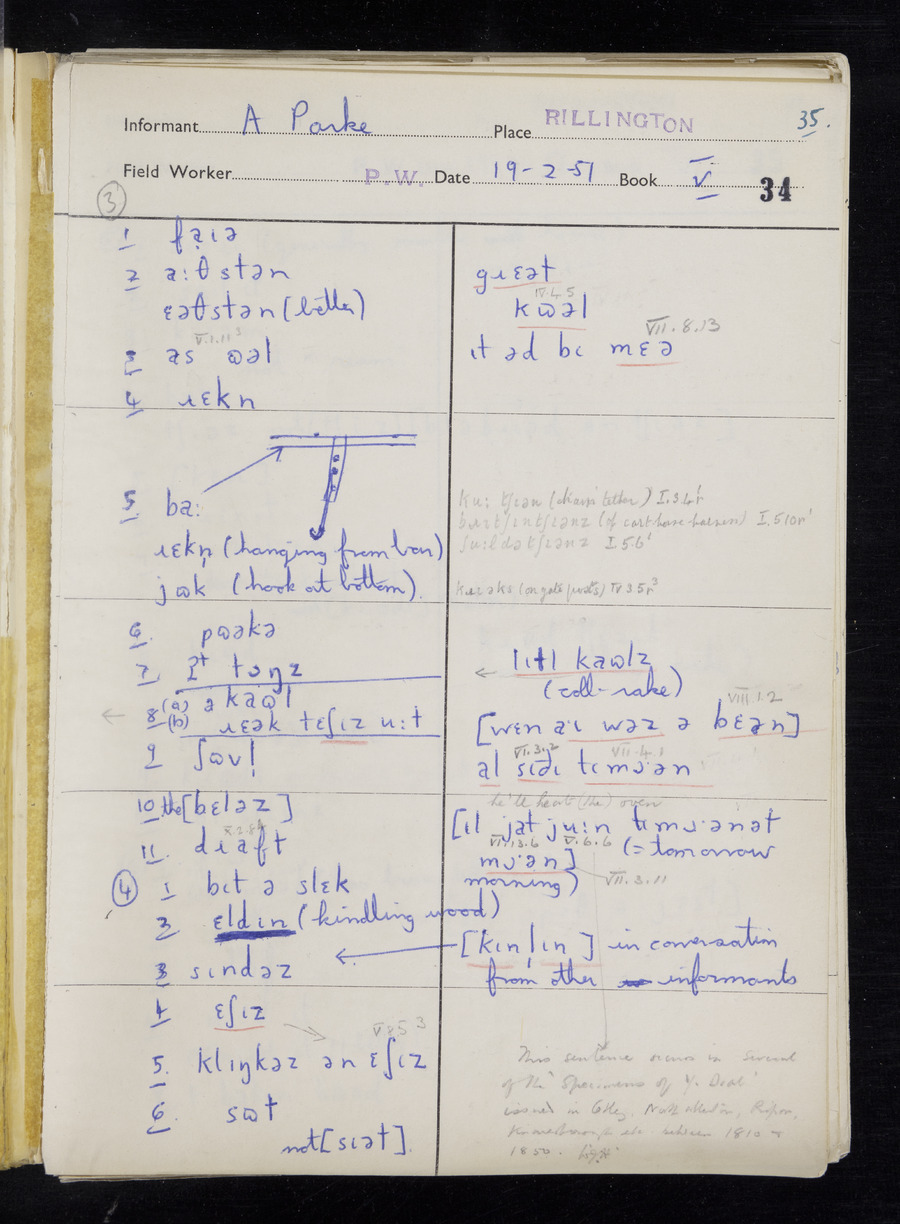 Informant A Parke Place RILLINGTON 35.
Field Worker P.W. Date 19-2-51 Book V 34
3
1 fạɪə
2 a:θstən
ɛəθstən (better)
V.1.11³
3 əs ɷəl
4 ɹɛkn
5 ba:
ɹɛkn̩ (hanging from bar)
jɷk (hook at bottom).
6. pɷəkə
7. tɔŋz
8 (a) ə kaɷl
(b) ɹɛək tɛʃɪz u:t
9 ʃɷvl
10 the [bɛləz]
11. dɹaft
4
1 bɪt ə slɛk
2 ɛldɪn (kindling wood)
3 sɪndəz
4 ɛʃɪz
5. klɪŋkəz ən ɛʃɪz
6. sɷt
not [sɪət].
gɹɛət
IV.4.5
kɷəl
VII.8.13
ɪt əd bɪ mɛə
ku: tʃɪən (chain tether) I.3.4
(of cart horse harness)
I.5.6
(on gate posts) IV 3.5
lɪtl kaɷlz
(coll-rake)
VIII.1.2
[wɛn a:ɪ wəz ə bɛən]
VI.3.2 VII.4.1
al sɪðɪ tɪmɔ:ən
he'll heat (the) oven
[ɪl jət ju:n tɪmɔ:ənət
VI.13.6 V.6.6 (= tomorrow
mɔ:ən]
morning) VII.3.11
[kɪnlɪn] in conversation
from other informants
This sentence occurs in several
of the 'Specimens of Y. Dial'
issued in Otley, Northallerton, Ripon,
Knaresborough etc between 1810 &
1850.